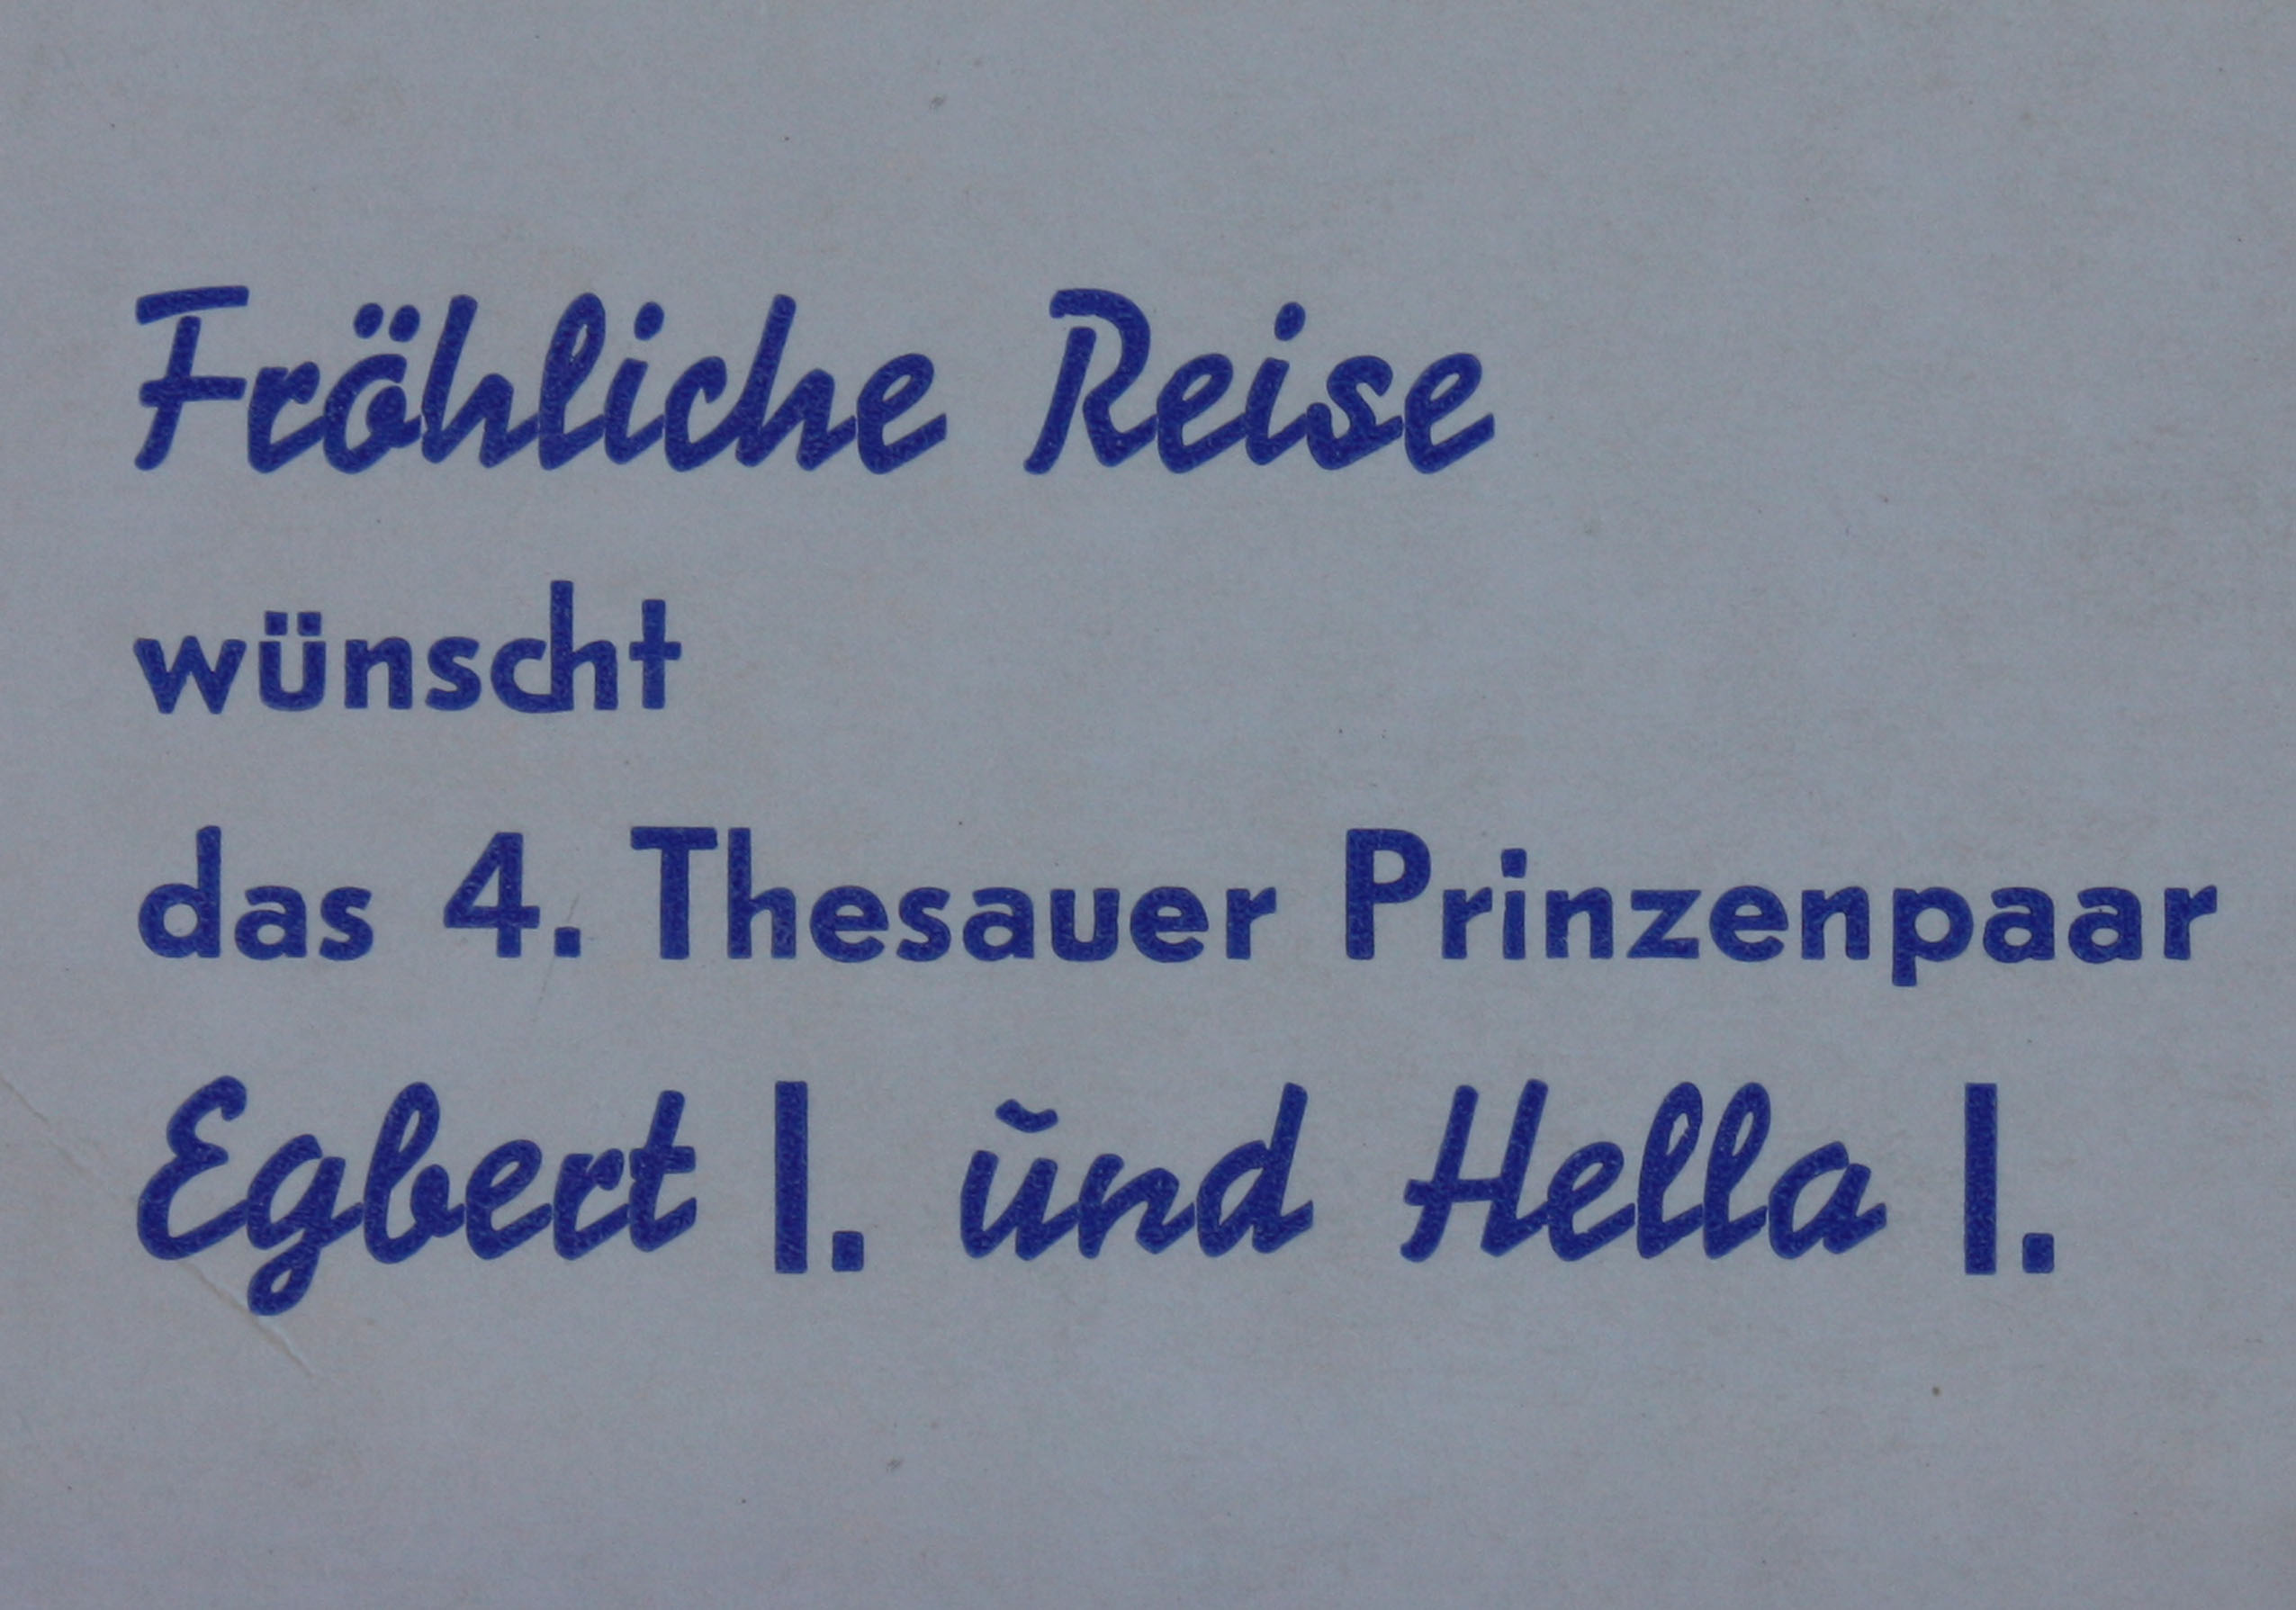 Fröhliche Reise
wünscht
das 4. Thesauer Prinzenpaar
Egbert I. ŭnd Hella I.